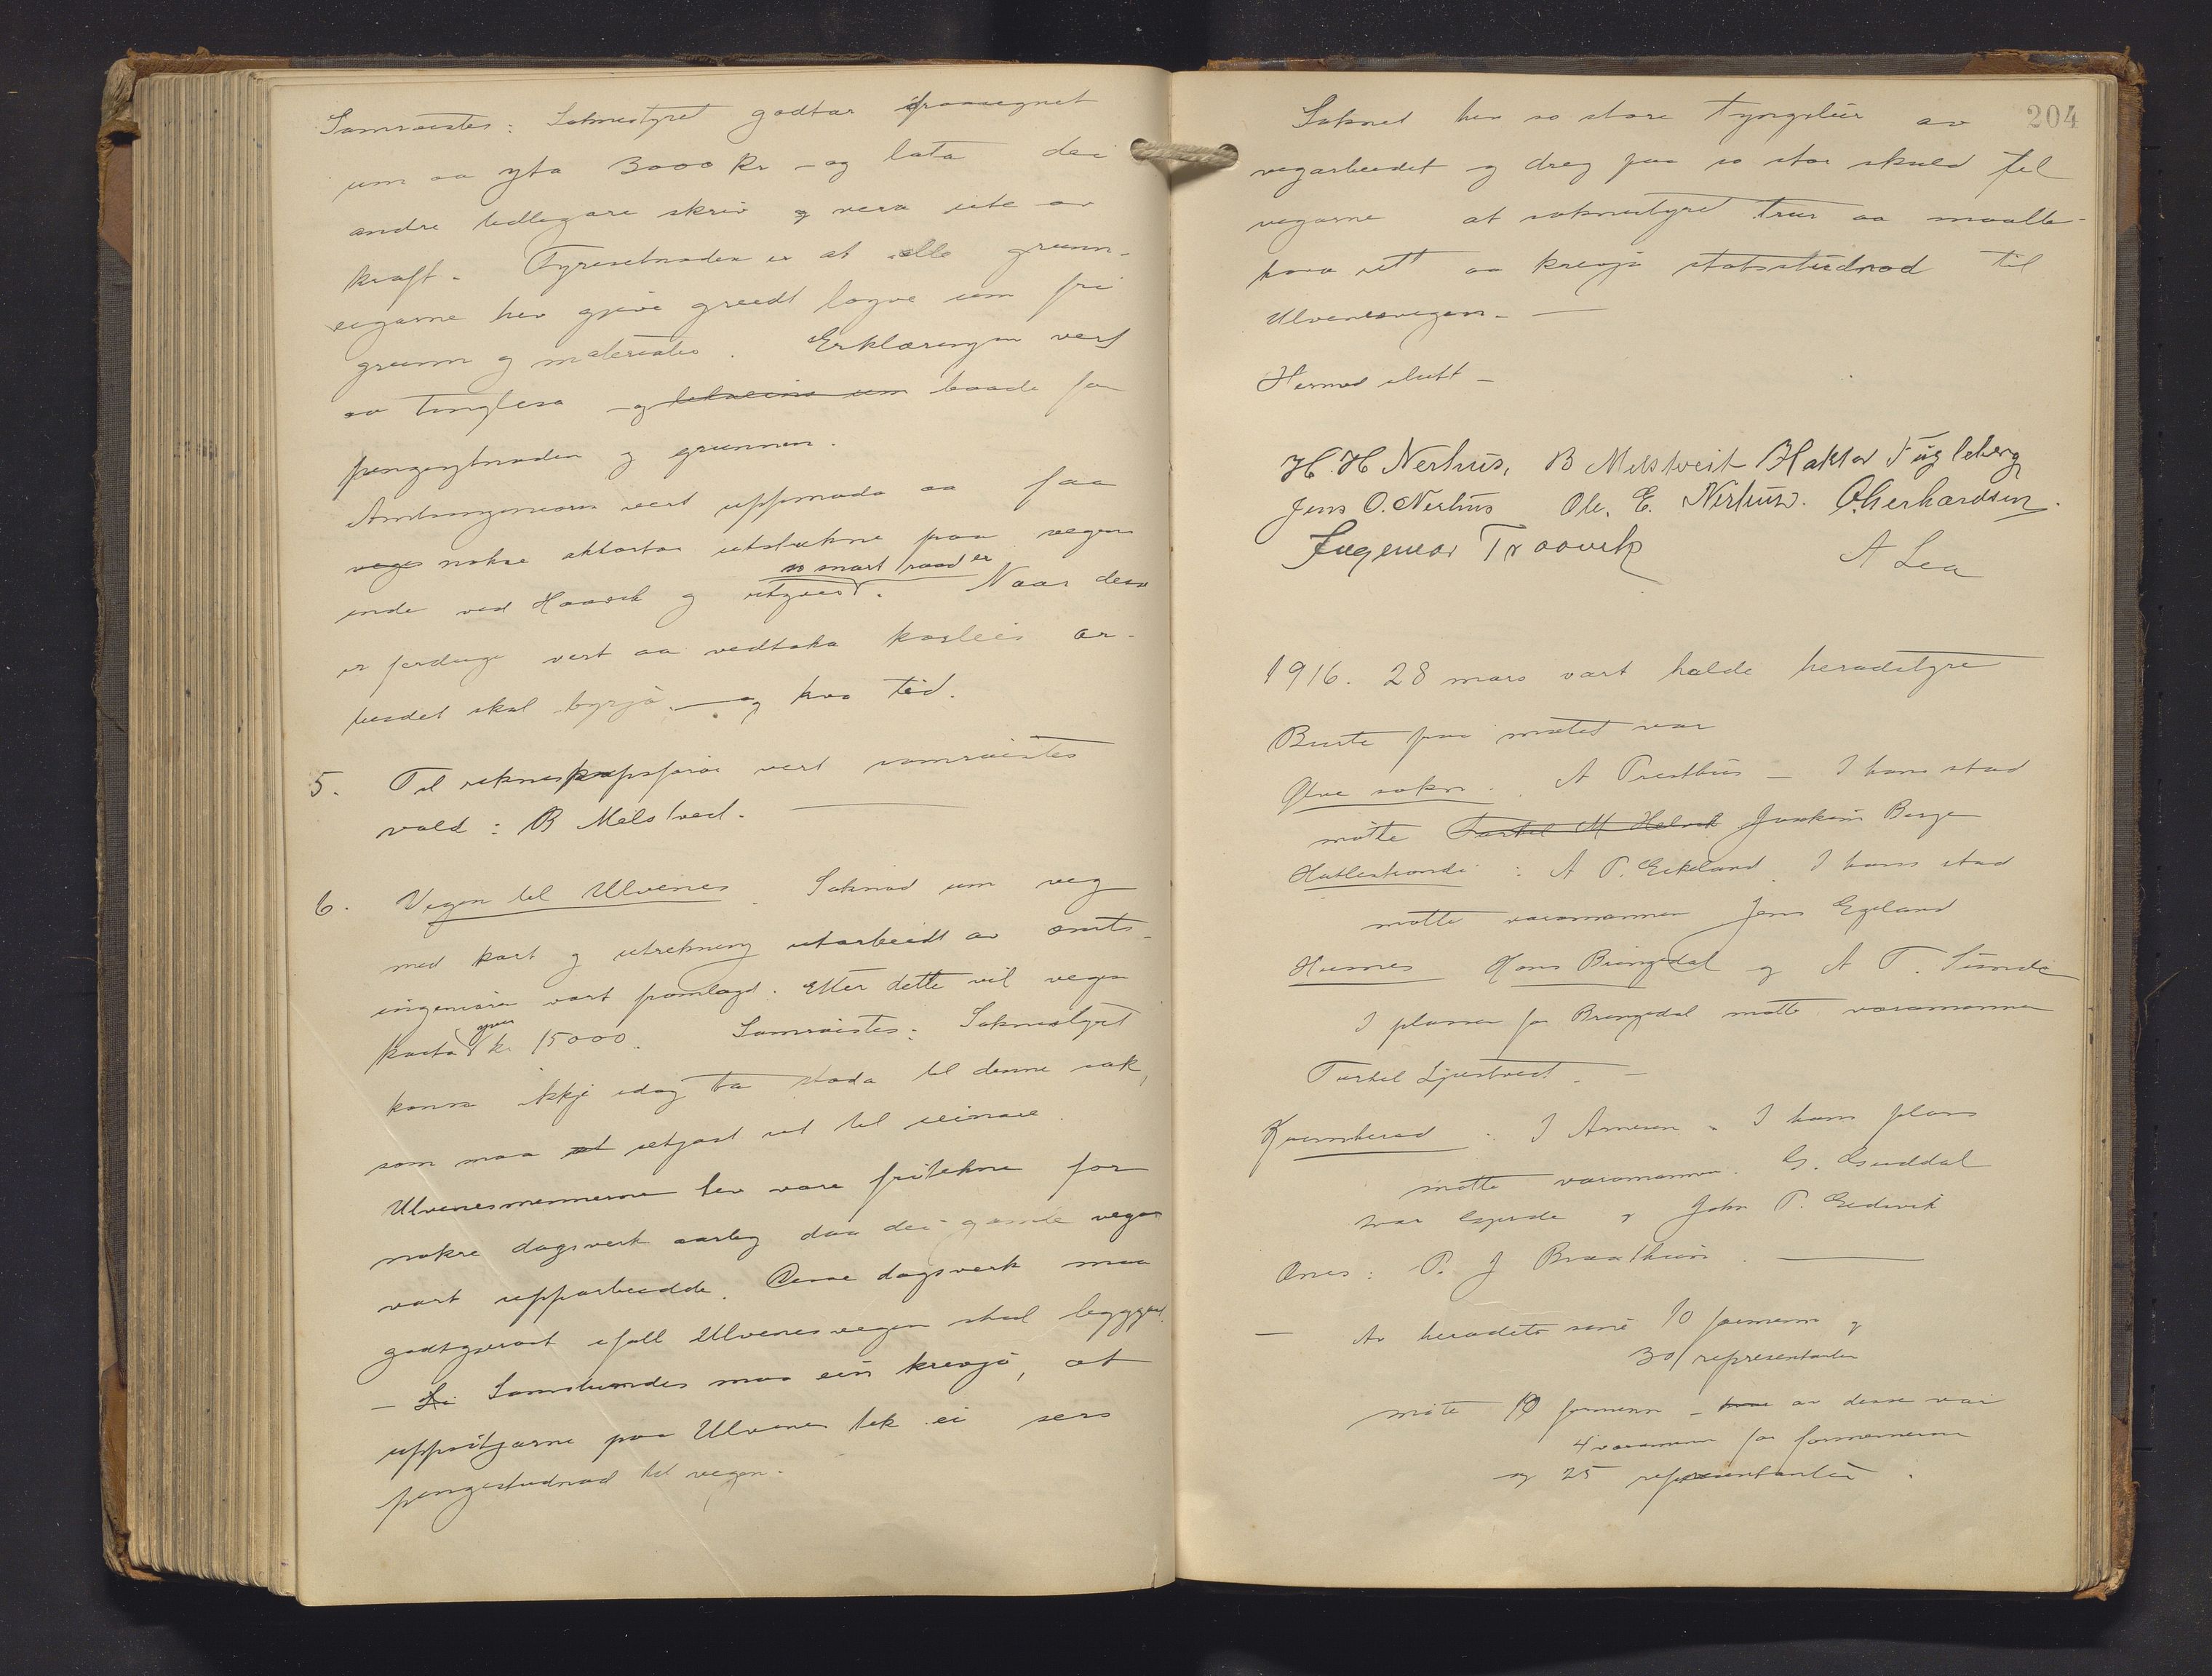 Samrøistes: Soknestyret godtar fraasegnet
um aa yta 3000 Kr – og lata dei
andre tedlegare skriv og vera ute av
kraft. Fyresetnaden er at alle grunn-
eigarne hev gjeve greidt logve um fri
grunn og materialer. Erklæringen vert
aa tinglesa – og baade for
pengeytnaden og grunnen.
Amtsingeniøren vert uppmoda aa faa
nokre akkortar utstukne paa vegen
inde ved Haavik og utgreid so snart raad er. Naar desse
er ferduge vert aa vedtaka korleis ar-
beidet skal byrja – og kva tid.
5. Til rekneskapsførar vert samrøistes
vald: B Melstveit.
6. Vegen til Ulvenes. Søknad um veg
med kart og utrekning utarbeidt av amts-
ingeniøren vart framlagt. Etter dette vil vegen
kosta yver kr 15000. Samrøistes: Soknestyret
kann ikkje idag ta stoda til denne sak,
som maa utsetjast til seinare.
Ulvenesmennerne hev vore fritekne for
nokre dagsverk aarleg daa dei gamle vegar
vart upparbeidde. Desse dagsverk maa
godtgjerast ifall Ulvenesvegen skal byggjast.
– Samstundes maa ein krevja, at
uppsitjarne paa Ulvenes tek ei sers
pengestudnad til vegen.
204
Soknet hev so store tyngslur av
vegarbeidet og dreg paa so stor skuld til
vegarne at soknestyret trur aa maatte
hava rett aa krevja statsstudnad til
Ulvenesvegen. –
Hermed slutt –
H. H Nerhus, B Melstveit Haktor Fugleberg
Jens O. Nerhus Ole. E. Nerhus. O. Gerhardsen.
Ingemar Traavik A Lea
1916. 28 mars vart halde heradstyre
Burte fraa møtet var
Ølve sokn. A Presthus – I hans stad
møtte Torkel M Helvik Joakim Berge
Hatlestrondi: A P. Eikeland. I hans stad
møtte varamannen Jens Egeland
Husnes Hans Bringedal og A T. Sunde
I plassen for Bringedal møtte varamannen
Tertel Ljostveit. –
Kvinnherad: I Arnesen. I hans plass
møtte varamannen G. Guddal
Ivar Gjerde og John P. Eidsvik
Ænes: P. J Braathun. –
– Av heradets sine 10 formenn og
30 representantar
møtte 10 formenn – av desse var
4 varamenn for formennerne
og 25 representantar.